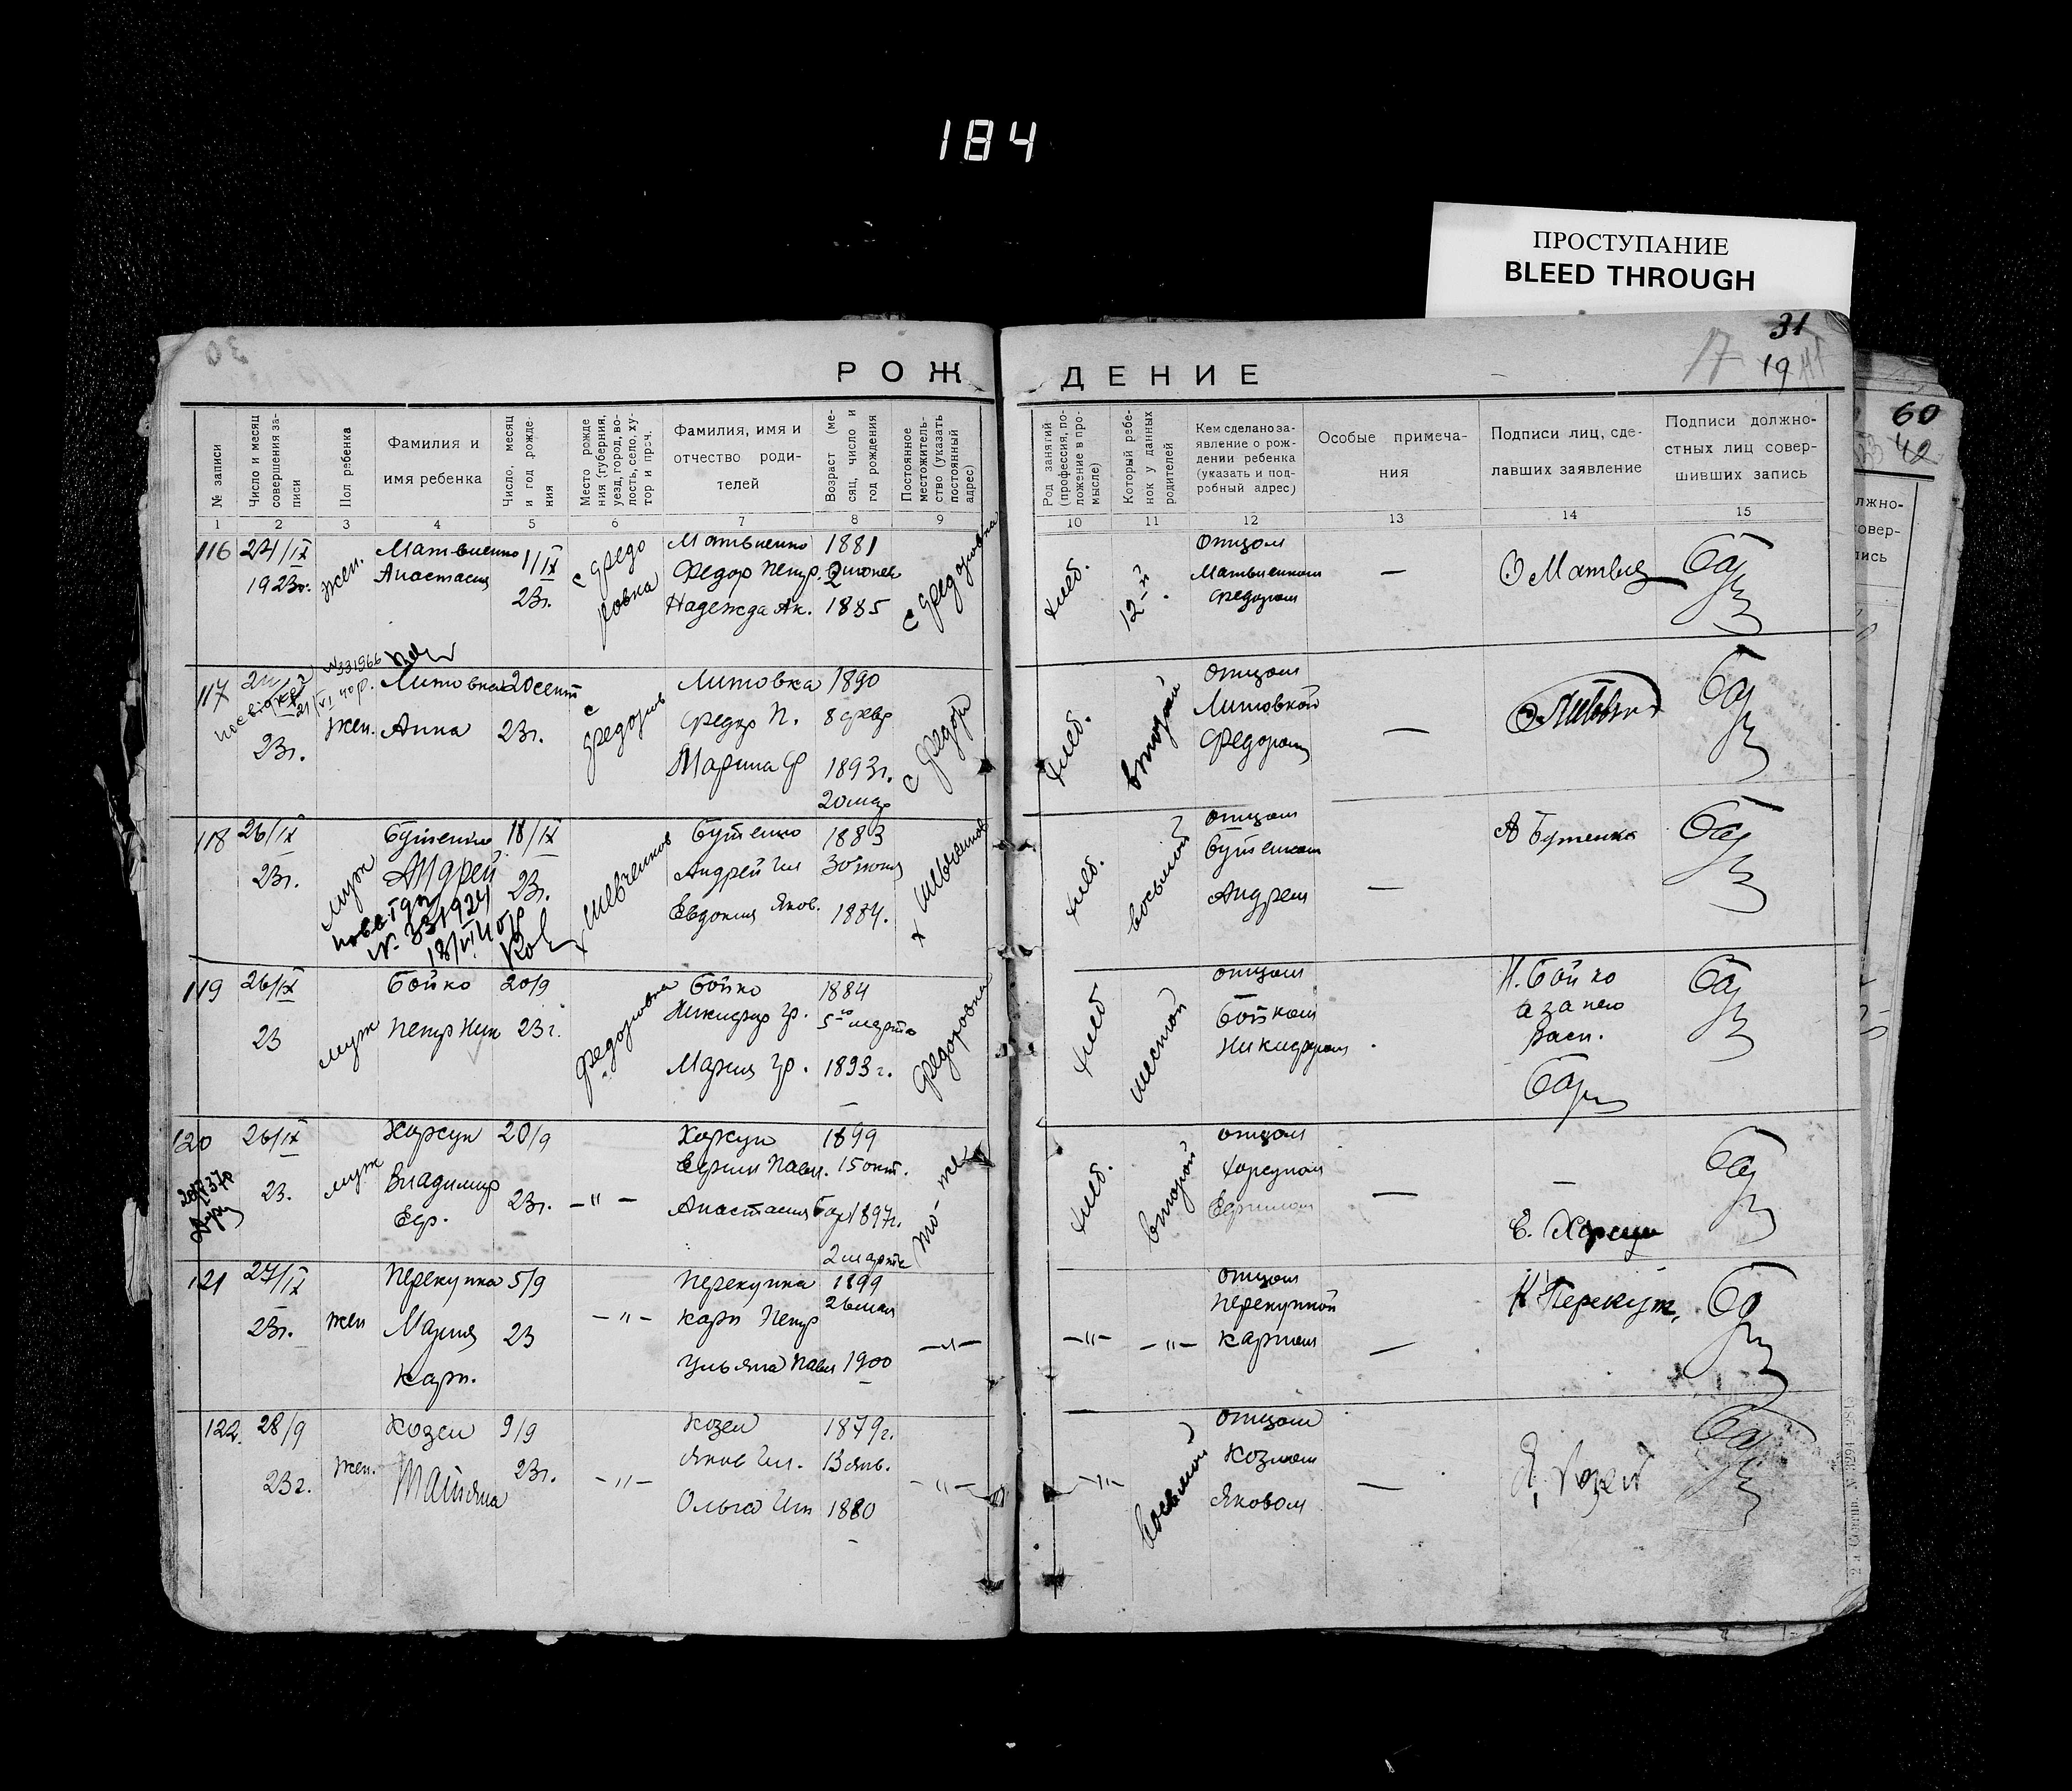 184
ПРОСТУПАНИЕ
BLEED THROUGH
31
19
60
42
РОЖДЕНИЕ
№ записи
Число и месяц совершения за-
писи
Пол ребенка
Фамилия и
имя ребенка
Число, месяц
и год рожде-
ния
Место рожде
ния (губерния,
уезд, город, во-
лость, село, ху-
тор и проч.
Фамилия, имя и
отчество роди-
телей
Возраст (ме-
сяц, число и
год рождения
Постоянное
местожитель-
ство (указать
постоянный
адрес)
Род занятий
(профессия, по-
ложение в про-
мысле)
Который ребе-
нок у данных
родителей
Кем сделано за-
явление о рож-
дении ребенка
(указать и под-
робный адрес)
Особые примеча-
ния
Подписи лиц, сде-
лавших заявление
Подписи должно-
стных лиц совер-
шивших запись
1 2 3 4 5 6 7 8 9 10 11 12 13 14 15
116
24/IX
1923г.
жен.
Матвиенко
Анастасия
11/IX
23г.
с Федо
ровка
Матвиенко
Федор Петр.
Надежда Ак.
1881
1885
с Федоровка
хлеб.
12-й
отцом
Матвиенком
Федором
—
Ф Матвие
117
23г.
№331966
жен.
Литовка
Анна
20 сент
23г.
с
Федоров
Литовка
Федор П.
Марина Ф
1890
8 февр
1893г.
20 мар
с Федор
хлеб.
второй
отцом
Литовкой
Федором
—
118
26/IX
23г.
муж
Бутенко
Андрей
№ 331924
18/IX
23г.
х Шевченков
Бутенко
Андрей Ил
Евдокия Яков.
1883
30 июня
1884.
х Шевченков
хлеб.
восьмой
отцом
Бутенком
Андреем
—
А Бутенко
119
26/IX
23
муж
Бойко
Петр Ник
20/9
23г.
Федоровка
Бойко
Никифор Гр.
Мария Гр.
1884
5го марта
1893г.
Федоровка
хлеб
шестой
отцом
Бойком
Никифором
Н. Бойко
а за него
расп.
120
26/IX
23.
муж
Харсун
Владимир
Еф.
20/9
23г.
—"—
Харсун
Ефим Павл.
Анастасия
1899
15 окт.
1897г.
2 марта
то-же
хлеб.
второй
отцом
Харсуном
Ефимом
—
—
Е. Харсун
121
27/IX
23г.
жен
Перекупка
Мария
Карп.
5/9
23
—"—
Перекупка
Карп Петр
Ульяна Павл
1899
26 мая
1900
—"—
—"—
—"—
отцом
Перекупкой
Карпом
—
К Перекуп.
122.
28/9
23г.
жен.
Козел
Татьяна
9/9
23г.
—"—
Козел
Яков Ил.
Ольга
1879г.
13 янв.
1880
"—
—"—
восьмой
отцом
Козлом
Яковом
—
Я. Козел